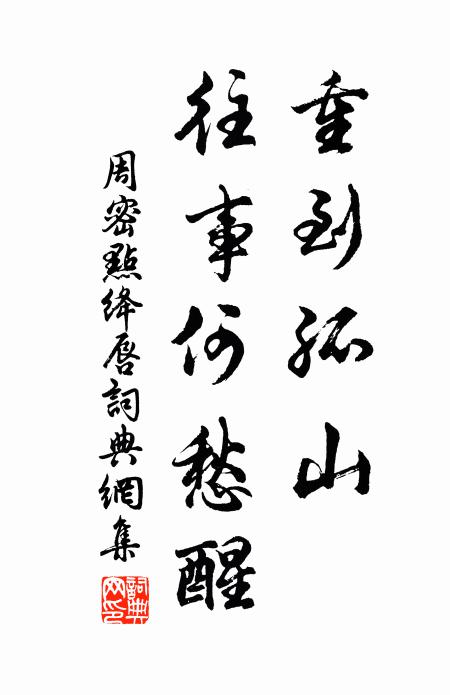 重到孤山
往事何愁醒
周密點绛唇詞典網集
詞典網印